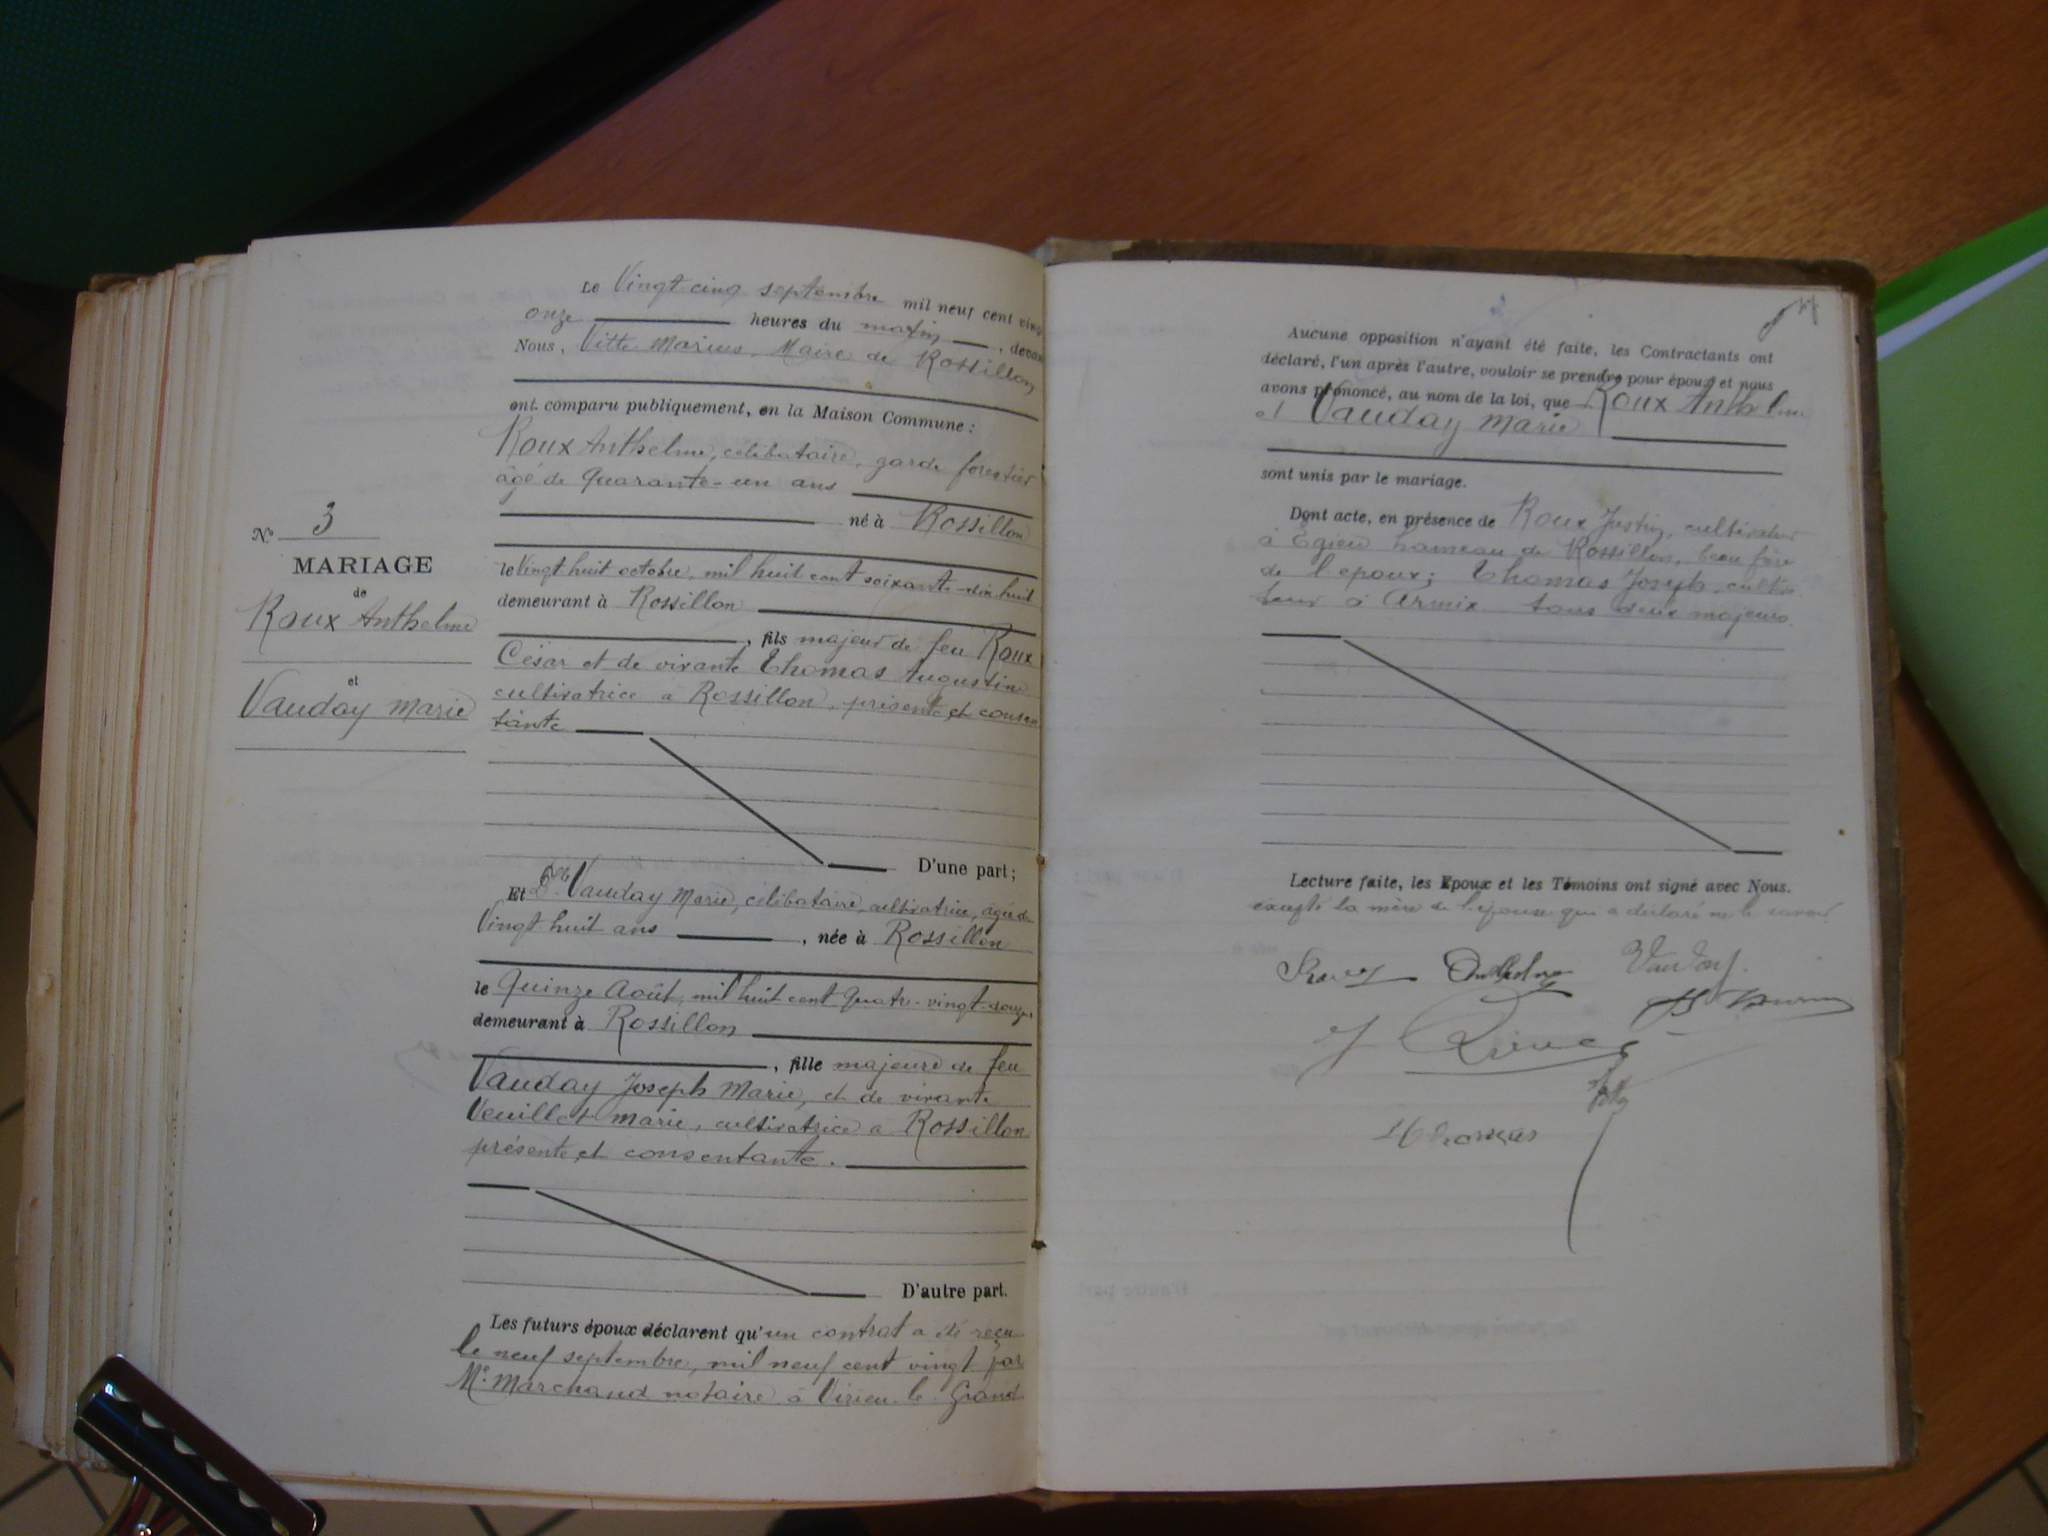 Le Vingt cinq septembre mil neuf cent ving
onze heures du matin, devan
Nous, Vitte Marius, Maire de Rossillon
ont comparu publiquement, en la Maison Commune :
Roux Anthelme, célibataire, garde forestier
âgé de quarante-un ans
né à Rossillon
le Vingt huit octobre, mil huit cent soixante-dix huit
demeurant à Rossillon
, fils majeur de feu Roux
César et de vivante Thomas Augustine
cultivatrice a Rossillon, présente et consen
tante
D'une part ;
N° 3
MARIAGE
de
Roux Anthelme
et
Vauday Marie
Et Dlle Vauday Marie, célibataire, cultivatrice, âgée de
Vingt huit ans , née à Rossillon
le Quinze Août, mil huit cent quatre-vingt-douze,
demeurant à Rossillon
, fille majeure de feu
Vauday Joseph Marie, et de vivante
Veuillet Marie, cultivatrice a Rossillon
présente et consentante.
D'autre part.
Les futurs époux déclarent qu'un contrat a été reçu
le neuf septembre, mil neuf cent vingt par
Me Marchand notaire à Virieu-le-Grand
Aucune opposition n'ayant été faite, les Contractants ont
déclaré, l'un après l'autre, vouloir se prendre pour époux et nous
avons prononcé, au nom de la loi, que Roux Anthelme
et Vauday Marie
sont unis par le mariage.
Dont acte, en présence de Roux Justin, cultivateur
à Egieu hameau de Rossillon, beau frère
de l'epoux ; Thomas Joseph, cultiva
teur à Armix tous deux majeurs.
Lecture faite, les Epoux et les Témoins ont signé avec Nous.
excepté la mère de l'épouse qui a déclaré ne le savoir.
Anthelme Vauday